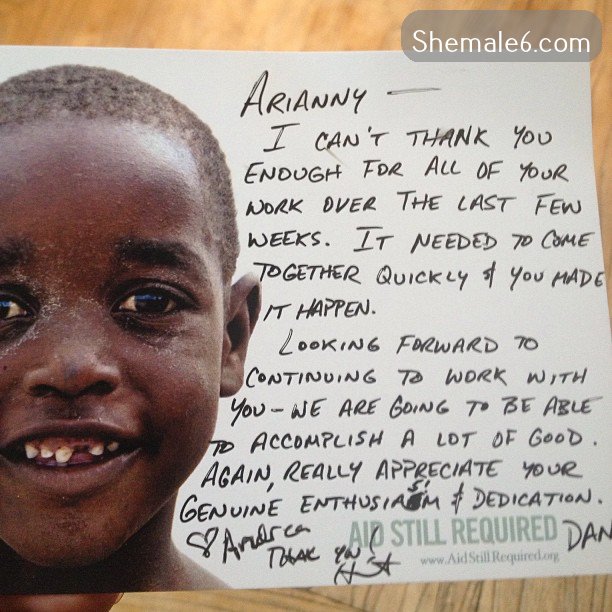 Shemale6.com
ARIANNY —
I CAN'T THANK YOU
ENOUGH FOR ALL OF YOUR
WORK OVER THE LAST FEW
WEEKS. IT NEEDED TO COME
TOGETHER QUICKLY & YOU MADE
IT HAPPEN.
LOOKING FORWARD TO
CONTINUING TO WORK WITH
YOU - WE ARE GOING TO BE ABLE
TO ACCOMPLISH A LOT OF GOOD.
AGAIN, REALLY APPRECIATE YOUR
GENUINE ENTHUSIASM & DEDICATION.
♡ Andrea
AID STILL REQUIRED
DAN
THANK YOU!
www.AidStillRequired.org